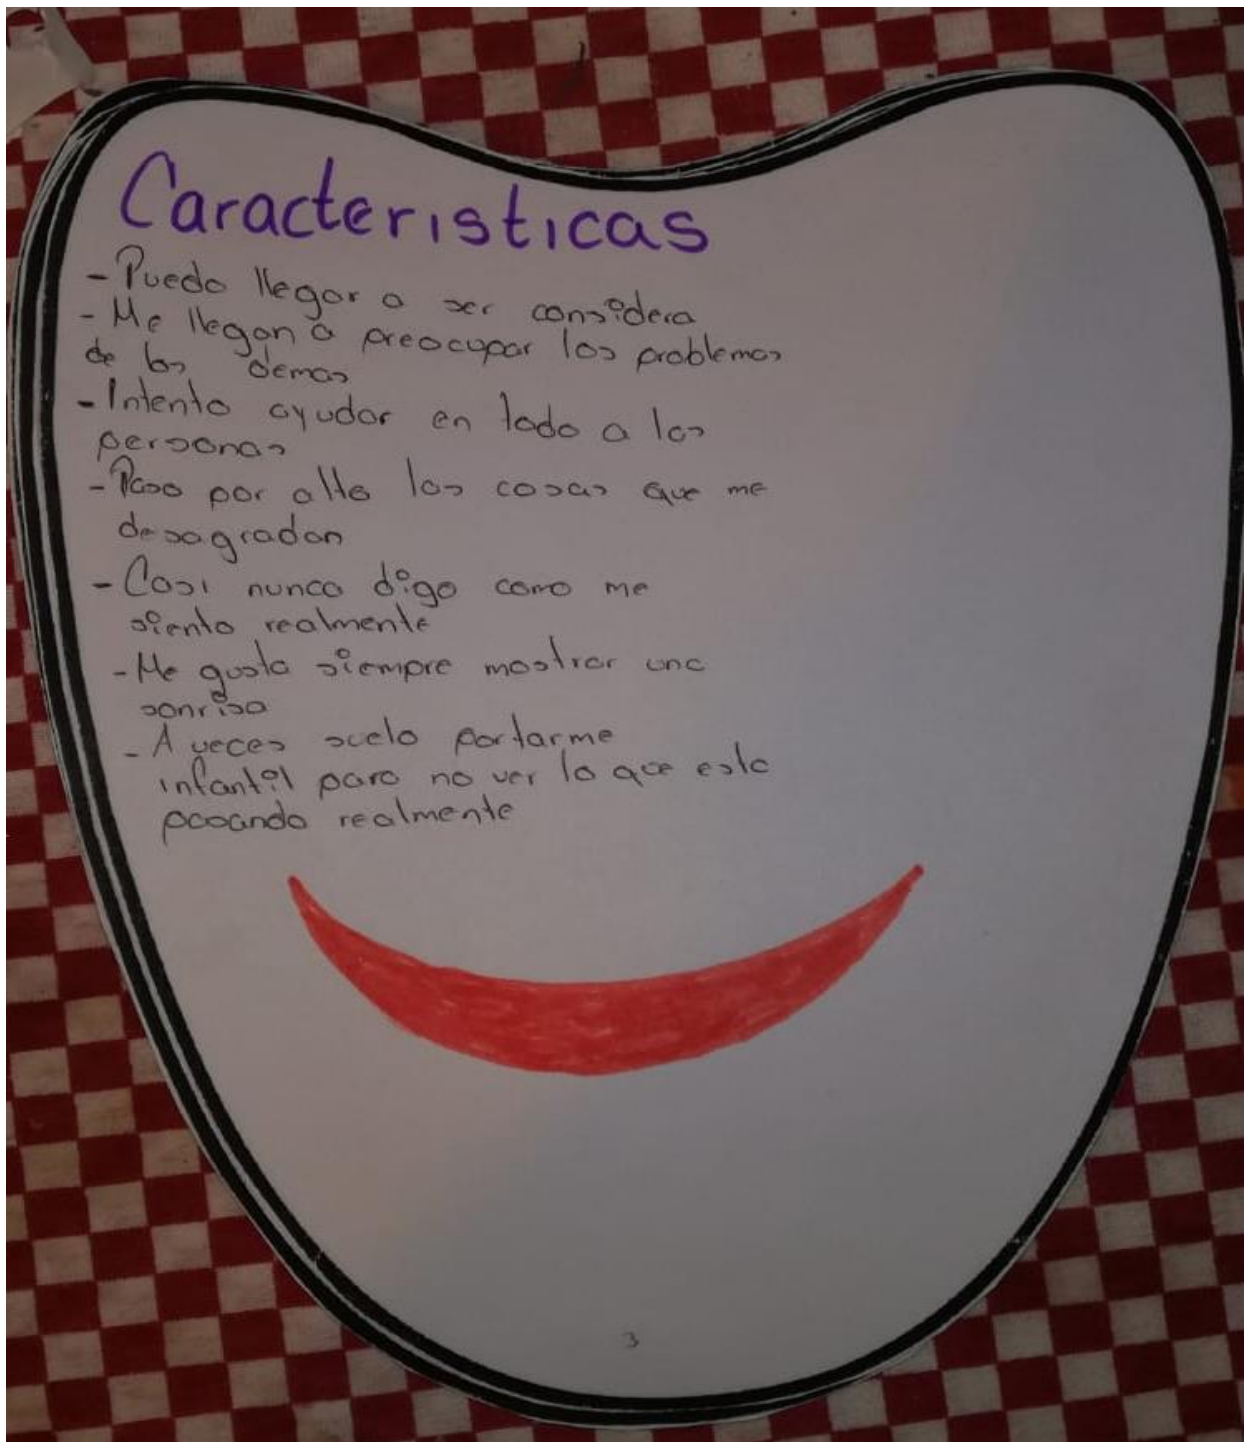 Caracteristicas
- Puedo llegar a ser considera
- Me llegan a preocupar los problemas
de los demas
- Intento ayudar en todo a las
personas
- Paso por alto las cosas que me
desagradan
- Casi nunca digo como me
siento realmente
- Me gusta siempre mostrar una
sonrisa
- A veces suelo portarme
infantil para no ver lo que esta
pasando realmente
3